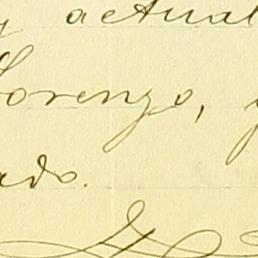 y actual
Lorenzo, y
ado.